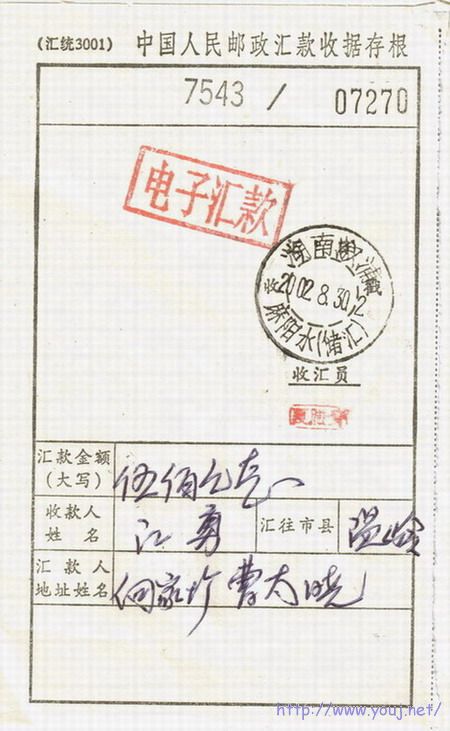 (汇统3001) 中国人民邮政汇款收据存根
7543 / 07270
电子汇款
湖南溆浦
收 2002.8.30.12
麻阳水(储汇)
收汇员
汇款金额
(大写)
伍佰元整
收款人
姓名
江勇
汇往市县
温岭
汇款人
地址姓名
http://www.youj.net/